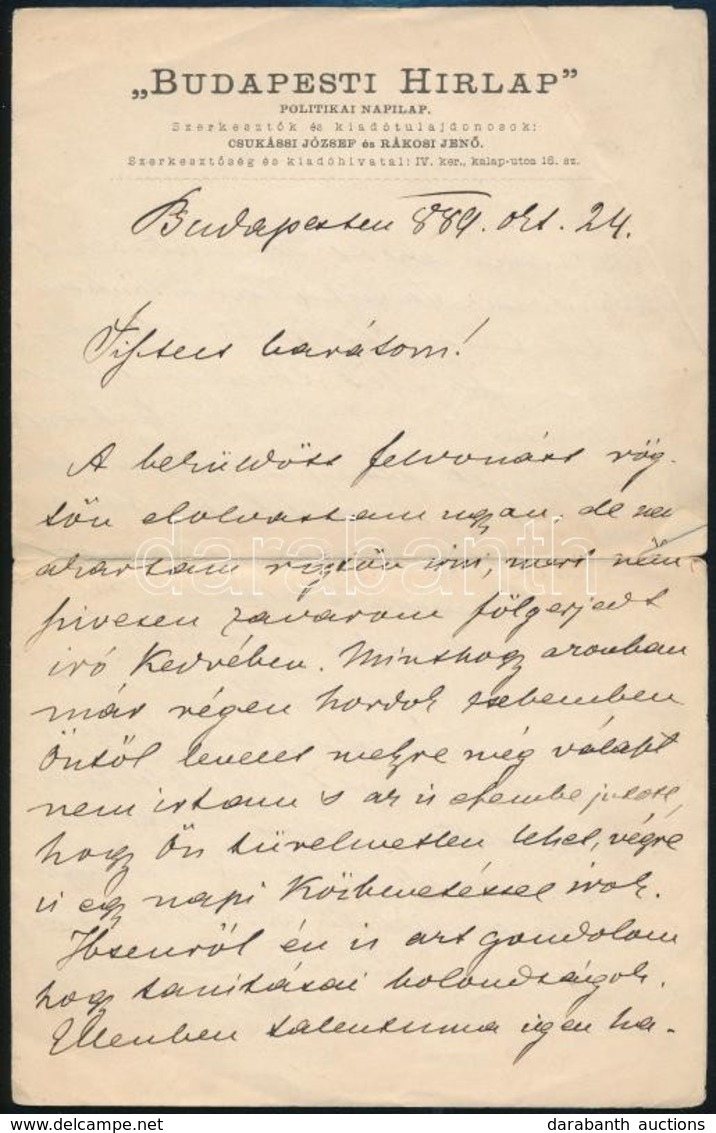 „BUDAPESTI HIRLAP”
POLITIKAI NAPILAP.
Szerkesztők és kiadótulajdonosok:
CSUKÁSSI JÓZSEF és RÁKOSI JENŐ.
Szerkesztőség és kiadóhivatal: IV. ker., kalap-utca 16. sz.
Budapesten 889. okt. 24.
Tisztelt barátom!
A beküldött felvonást rög-
tön elolvastam ugyan. de nem
akartam rögtön irni, mert nem
szivesen zavarom fölgerjedt
iró kedvében. Minthogy azonban
már régen hordok zsebemben
Öntől levelet melyre még választ
nem irtam 's az is eszembe jutott,
hogy Ön türelmetlen lehet, végre
is egy napi közbevetéssel irok.
Ibsenről én is azt gondolom
hogy tanitásai bolondságok.
Ellenben talentuma igen ha-
darabanth
darabanth auctions